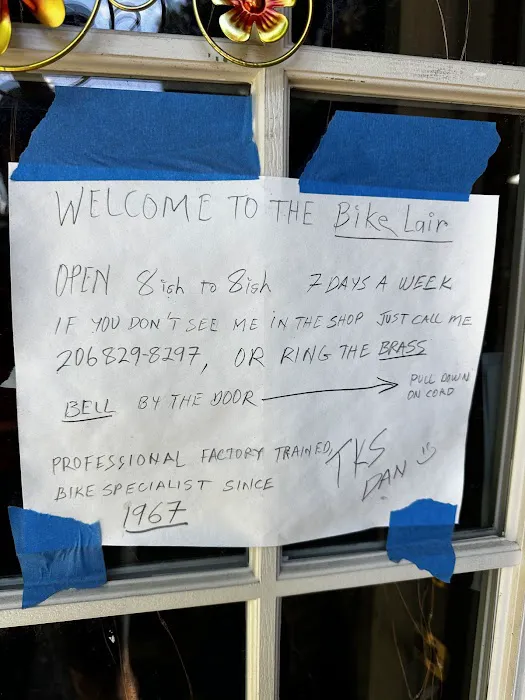 WELCOME TO THE Bike Lair
OPEN 8ish to 8ish 7 DAYS A WEEK
IF YOU DON'T SEE ME IN THE SHOP JUST CALL ME
206 829-8297, OR RING THE BRASS
BELL BY THE DOOR
PULL DOWN
ON CORD
PROFESSIONAL FACTORY TRAINED,
BIKE SPECIALIST SINCE
1967
TKS
DAN